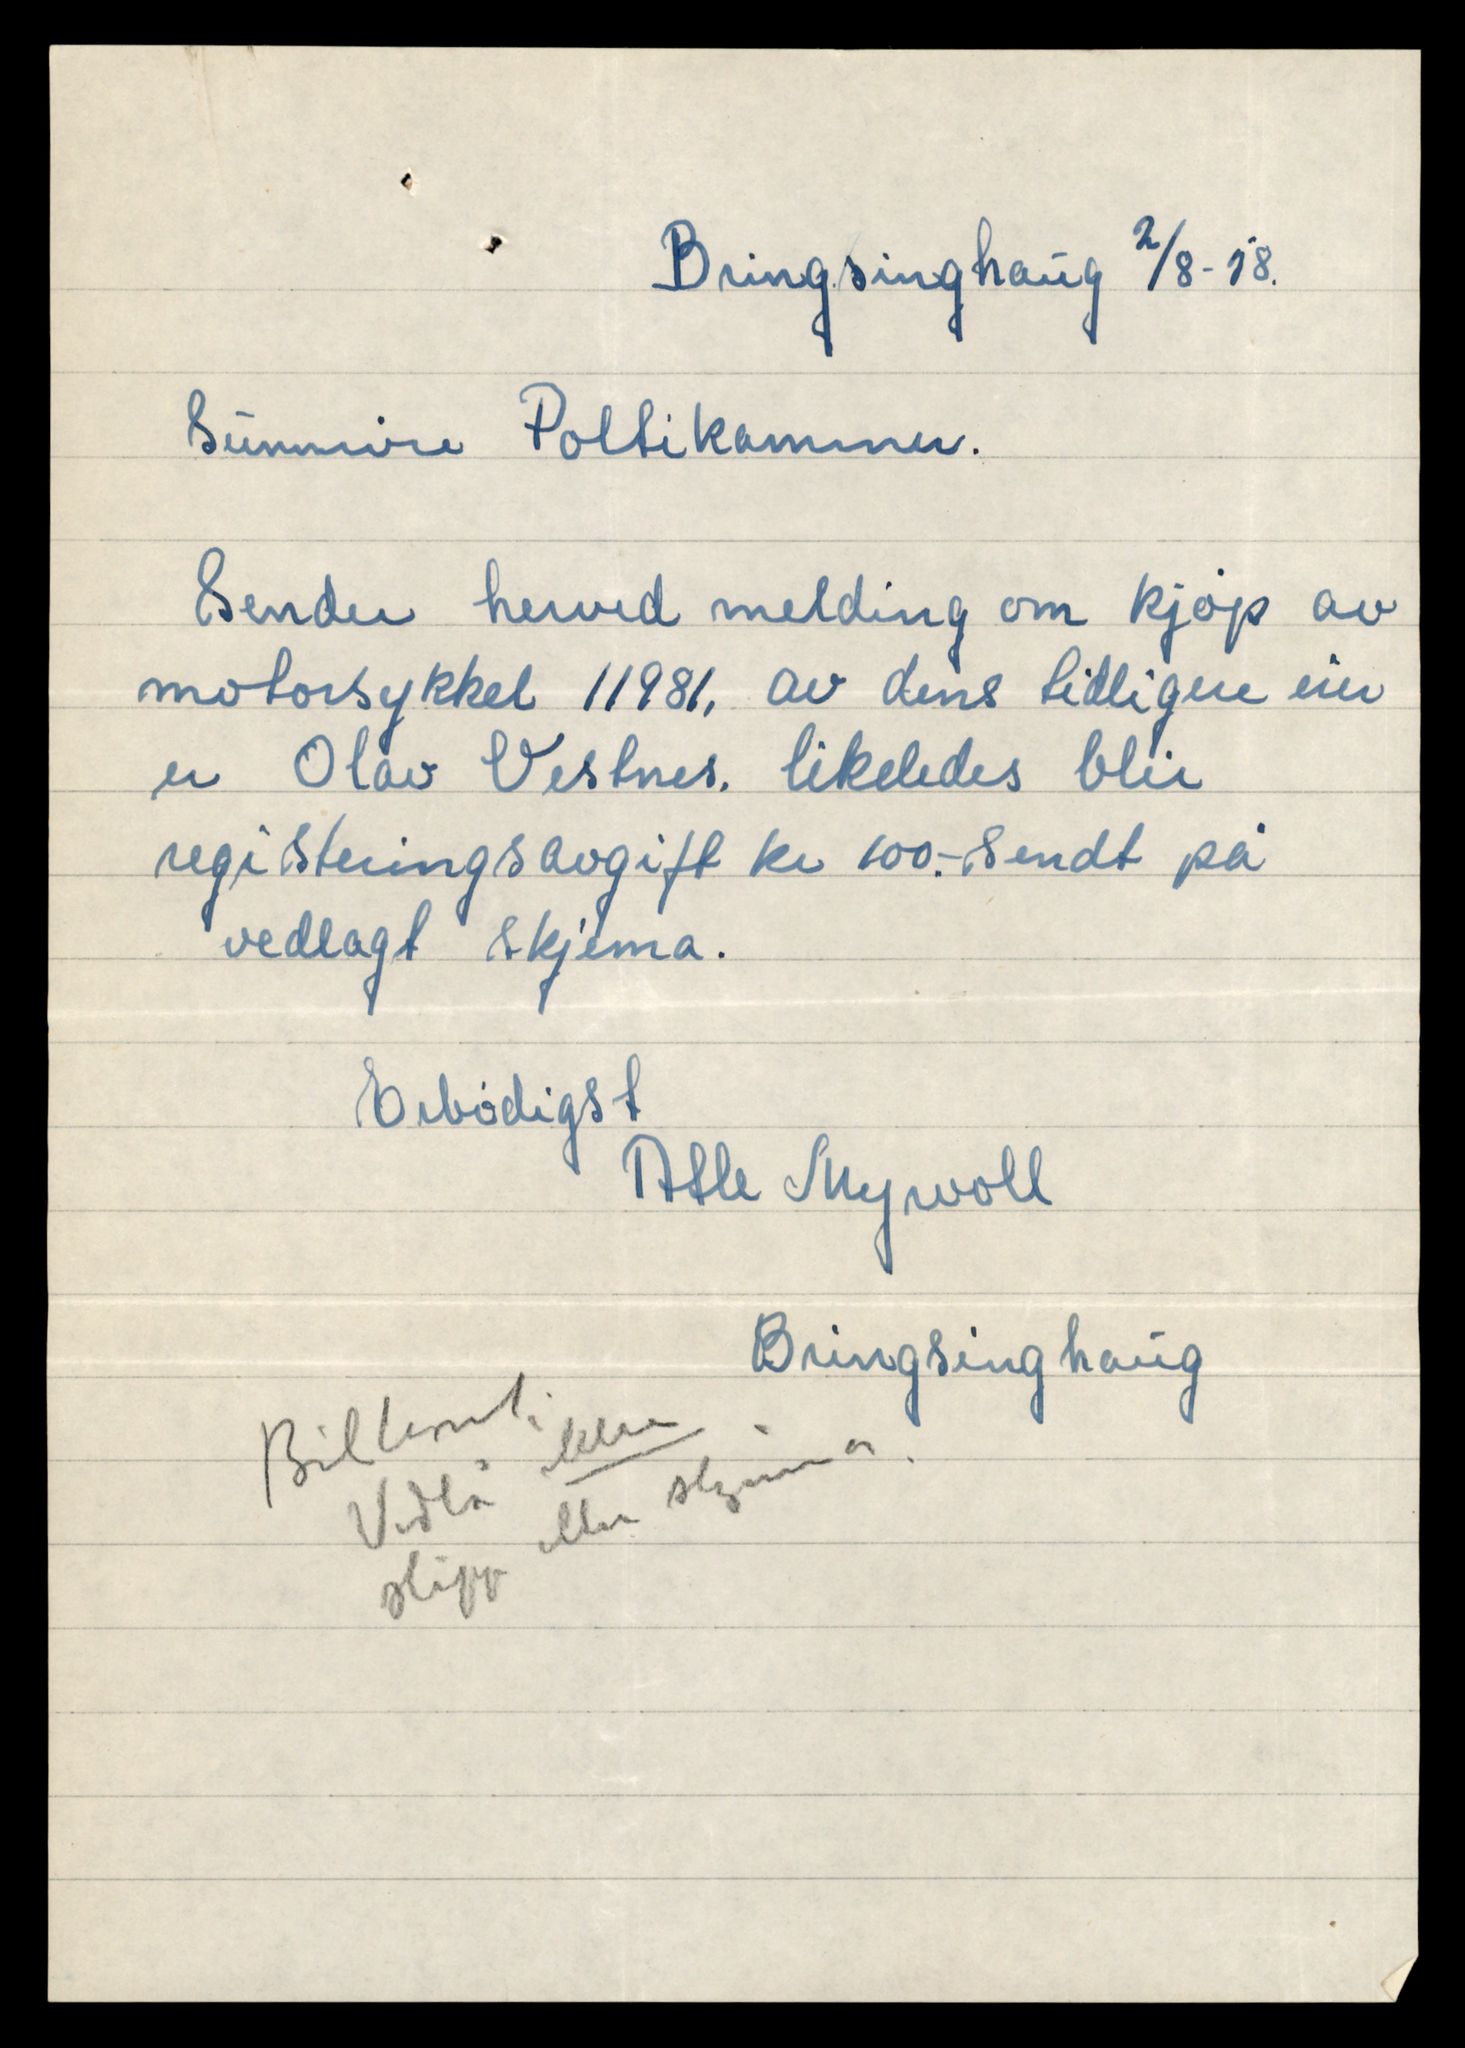 Bringsinghaug 2/8-58.
Sunnmøre Poltikammer.
Sender herved melding om kjøp av
motorsykkel 11981, av dens tidligere eier
er Olav Vestnes. likeledes blir
registeringsavgift kr 100.- sendt på
vedlagt skjema.
Erbødigst
Atle Myrvoll
Bringsinghaug
Vedlå ikke
slipp eller skjema.